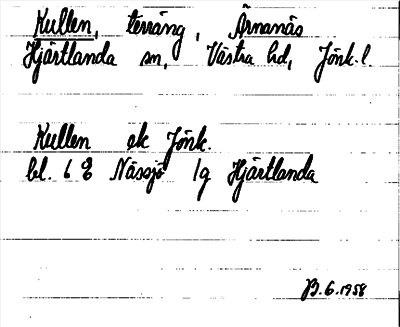 Kullen, terräng, Ärnanäs
Hjärtlanda sn, Västra hd, Jönk. l.
Kullen ek Jönk.
bl. 6 E Nässjö 1g Hjärtlanda
B. G. 1958